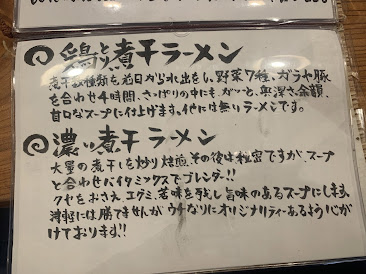 鶏と煮干ラーメン
煮干数種類を前日から水出をし、野菜7種、ガラや豚
を合わせ4時間、さっぱりの中にも ガツと 奥深さ、余韻、
甘口なスープに仕上げます。他には無いラーメンです。
濃い煮干ラーメン
大量の煮干しを炒り 焙煎、その後は秘密ですが、スープ
と合わせバイタミックスでブレンダー!!
クセをおさえ、エグミ、苦味を残し 旨味のあるスープにします。
津軽には勝てませんが、ウチなりにオリジナリティーあるよう心が
けております!!